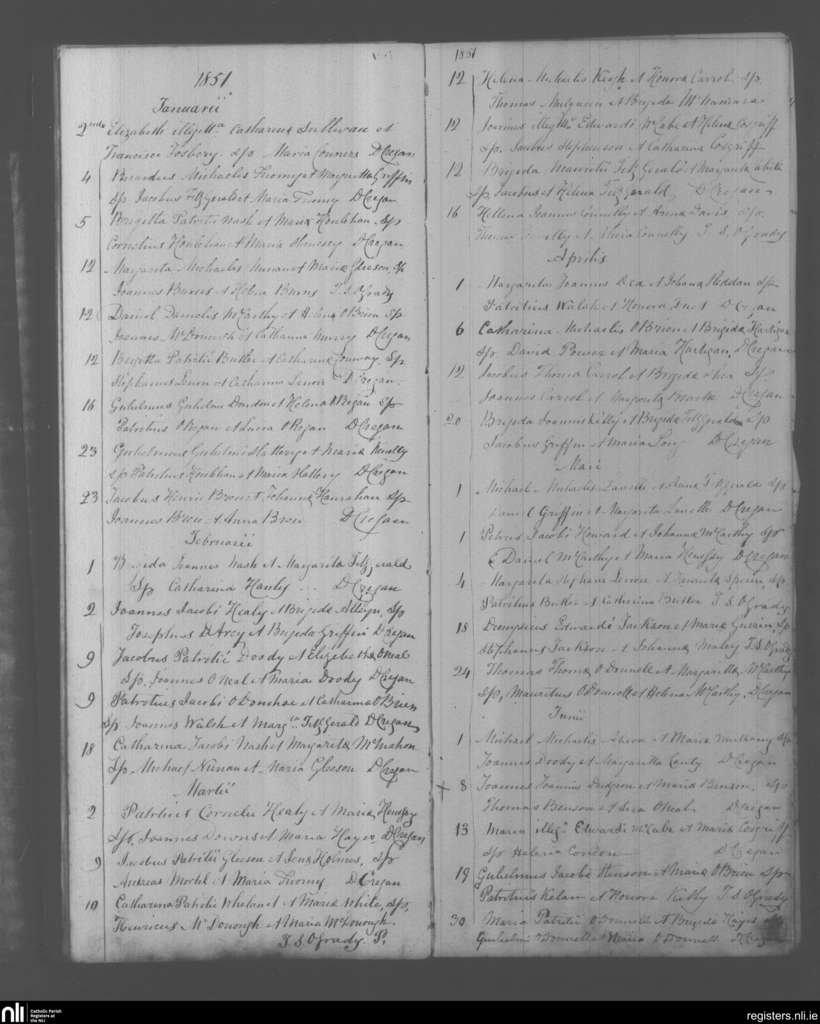 1851
Januarii
2nda Elizabeth illegittma Catharina Sullivan et
Francisce Fosbery. Sp. Maria Conners D Cregan
4 Michaelis Twomy et Margaritta Griffin
Sp. Jacobus Fitzgerald et Maria Twomy D Cregan
5 Brigetta Patritii Nash et Maria Houlihan Sp.
Cornelius Houlihan et Maria Hennesy D Cregan
12 Margarita Michaelis et Maria Gleeson, Sp.
Joannes Burns et Helena Burns T S O'Grady
12 Daniel Danielis McCarthy et Helena O'Brien Sp
Joannes McDonnogh et Catharina Murray D Cregan
12 Brigitta Patritii Butler et Catharina Conway. Sp
Stephanus Lenoir et Catharina Lenoir D Cregan
16 Gulielmus Gulielmi Dundon et Helena O'Regan Sp
Patritius O'Regan et Lucia O'Regan D Cregan
23 Gulielmus Gulielmi Slattery et Maria
Sp Patritius Houlihan et Maria Slattery D Cregan
23 Jacobus Henrici Brown et Johanna Hanrahan Sp
Joannes Brien et Anna Brien D Cregan
Februarii
1 Brigeda Joannes Nash et Margarita Fitzgerald
Sp Catharina Hanly D Cregan
2 Joannes Jacobi Healy et Brigeda Alleyn, Sp
Josephus D'Arcy et Brigeda Griffin D Cregan
9 Jacobus Patritii Doody et Elizabetha O'Neal
Sp. Joannes O'Neal et Maria Doody D Cregan
9 Patritius Jacobi O'Donohoe et Catharina O'Brien
Sp Joannes Walsh et Margta Fitzgerald D Cregan
18 Catharina Jacobi Nash et Margarita McMahon
Sp. Michael Nunan et Maria Gleeson D Cregan
Martii
2 Patritius Cornelii Healy et Maria Hennessy
Sp. Joannes Downs et Maria Hayes, D Cregan
9 Jacobus Patritii Gleeson et Jena Holmes, Sp
Andreas Mortel et Maria Twomy D Cregan
10 Catharina Patritii Whelan et Maria White, Sp,
Henricus McDonough et Maria McDonough.
T S O'Grady. P.
1851
12 Helena Michaelis Keogh et Honora Carrol Sp
Thomas Mulquein et Brigeda McNamara
12 Joannes illegttm Edwardi McCabe et Helena Cosgriff
Sp. Jacobus Stephenson et Catharina Cosgriff
12 Brigeda Mauritii Fitzgerald et Margarita White
Sp Jacobus et Helena Fitzgerald, D Cregan
16 Hellena Joannes Connelly et Anna Davis Sp.
et Alicia Connelly T S O'Grady
Aprilis
1 Margarita Joannes Dea et Johana Heddan Sp
Patritius Walsh et Honora D Cregan
6 Catharina Michaelis O'Brien et Brigeda Hartigan
Sp. David Power et Maria Hartigan, D Cregan
12 Jacobus Thoma Carrol et Brigeda Sp
Joannes Carrol et Margarita D Cregan
20 Brigeda Joannes Kielly et Brigeda Fitzgerald Sp
Jacobus Griffin et Maria D Cregan
Maii
1 Michael Michaelis et Anna Fitzgerald Sp
Daniel Griffin et Margarita D Cregan
1 Petrus Jacobi Howard et Johanna McCarthy Sp
Daniel McCarthy et Maria Hennessy D Cregan
4 Margarita Stephani Lenoir et Sp.
Patritius Butler et Catherina Butler T S O'Grady
18 Dionysius Edwardi Jackson et Maria Guerin Sp
Stephanus Jackson et Johanna T S O'Grady
24 Thomas Thoma O'Donnell et Margaritta McCarthy
Sp, Mauritius O'Donnell et Helena McCarthy, D Cregan
Junii
1 Michael Michaelis et Maria Sp
Joannes Doody et Margaritta Canty D Cregan
+ 8 Joannes Joannis et Maria Benson, Sp
Thomas Benson et O'Neal D Cregan
13 Maria illeg. Edwardi McCabe et Maria Cosgriff
Sp Helena Condon D Cregan
19 Gulielmus Jacobi Henson et Maria O'Brien Sp
Patritius et Honora Kielly T S O'Grady
30 Maria Patritii O'Donnell et Brigeda Hayes Sp
Gulielmi O'Donnell et Maria O'Donnell D Cregan
nli
Catholic Parish
Registers at
the NLI
registers.nli.ie